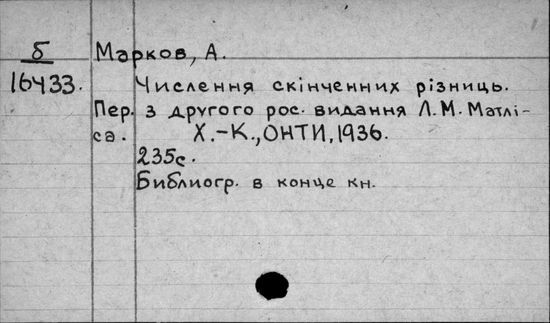 б Марков, А.
16433. Числення скінченних різниць.
Пер. з другого рос. видання Л.М. Матлі-
са. Х.-К., ОНТИ, 1936.
235с.
Библиогр. в конце кн.